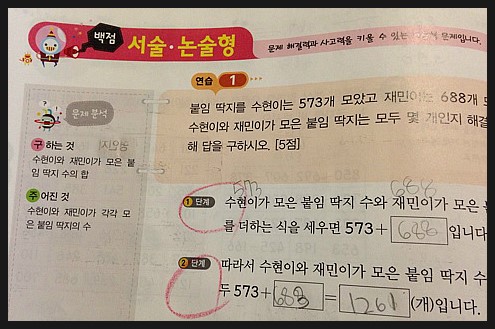 백점 서술·논술형
문제 해결력과 사고력을 키울 수 있는 문제입니다.
연습 1
붙임 딱지를 수현이는 573개 모았고 재민이는 688개
수현이와 재민이가 모은 붙임 딱지는 모두 몇 개인지 해결
해 답을 구하시오. [5점]
문제 분석
구하는 것
수현이와 재민이가 모은 붙
임 딱지 수의 합
주어진 것
수현이와 재민이가 각각 모
은 붙임 딱지의 수
573 688
1 단계 수현이가 모은 붙임 딱지 수와 재민이가 모은
를 더하는 식을 세우면 573+688입니다
2 단계 따라서 수현이와 재민이가 모은 붙임 딱지 수
두 573+688=1261(개)입니다.